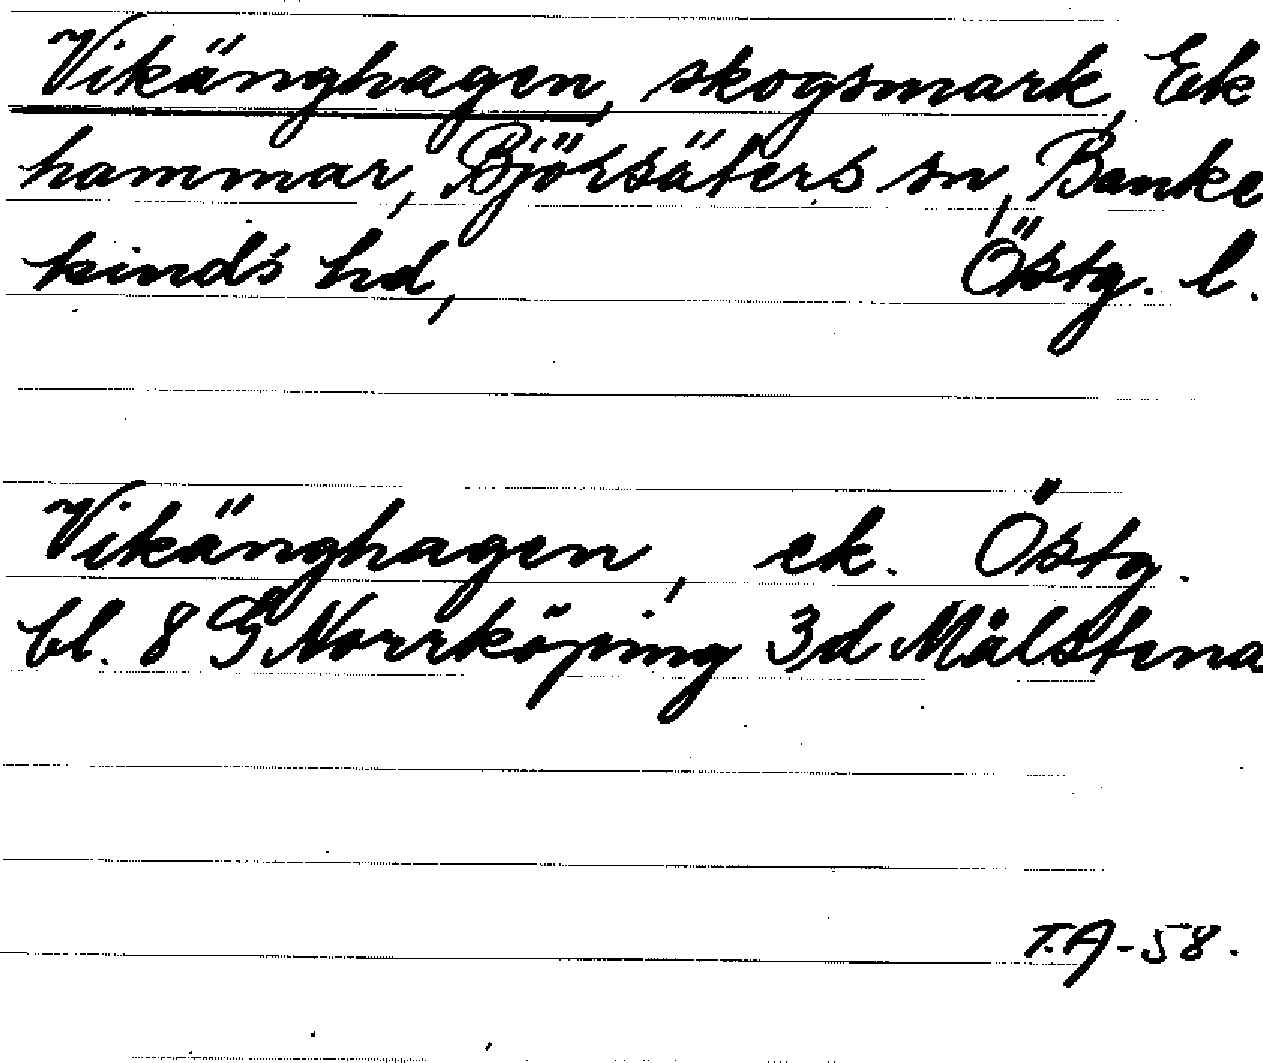 Vikänghagen, skogsmark, Ek
hammar, Björsäters sn, Banke
kinds hd, Östg. l.
Vikänghagen, ek. Östg.
bl. 8 G Norrköping 3d Målstena
T.A-58.